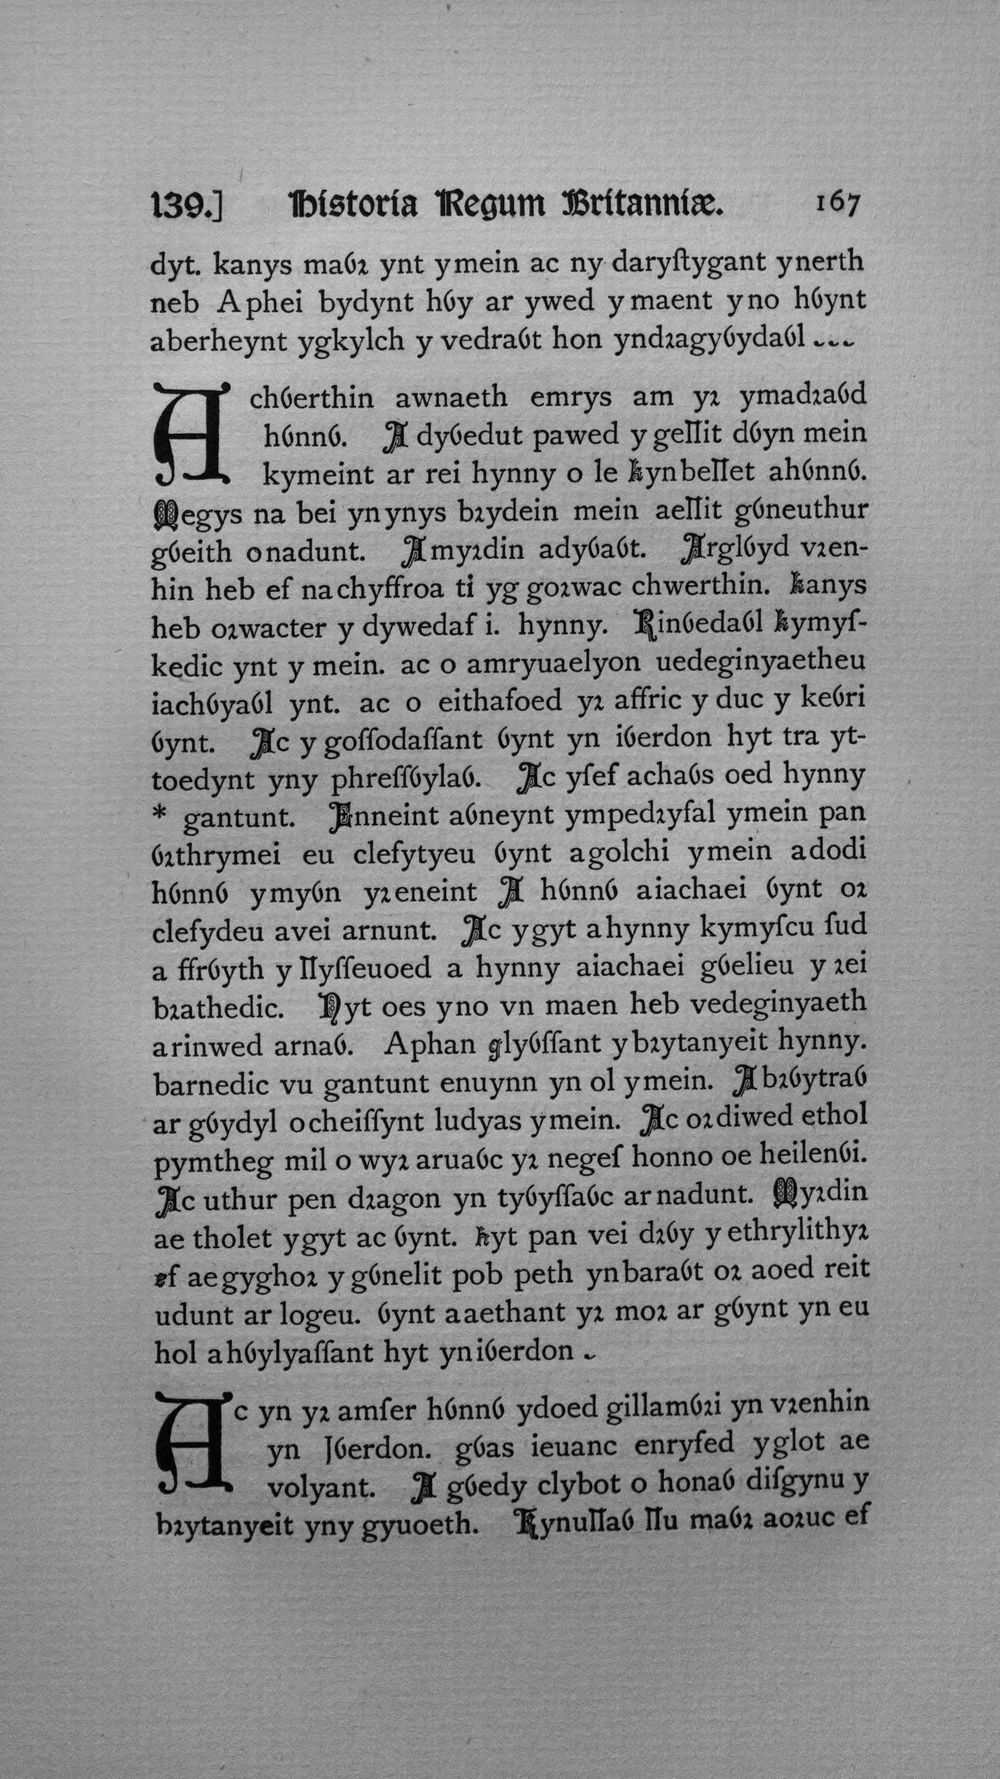 139.] Historia Regum Britanniæ. 167
dyt. kanys maỽꝛ ynt ymein ac ny daryſtygant ynerth
neb Aphei bydynt hỽy ar ywed ymaent yno hỽynt
aberheynt ygkylch y vedraỽt hon yndꝛagyỽydaỽl
A chỽerthin awnaeth emrys am yꝛ ymadꝛaỽd
hỽnnỽ. A dyỽedut pawed y geỻit dỽyn mein
kymeint ar rei hynny o le kynbeỻet ahỽnnỽ.
Megys na bei ynynys bꝛydein mein aeỻit gỽneuthur
gỽeith onadunt. Amyꝛdin adyỽaỽt. Arglỽyd vꝛen-
hin heb ef nachyffroa ti yg goꝛwac chwerthin. kanys
heb oꝛwacter y dywedaf i. hynny. Rinỽedaỽl kymyſ-
kedic ynt y mein. ac o amryuaelyon uedeginyaetheu
iachỽyaỽl ynt. ac o eithafoed yꝛ affric y duc y keỽri
ỽynt. Ac y goſſodaſſant ỽynt yn iỽerdon hyt tra yt-
toedynt yny phreſſỽylaỽ. Ac yſef achaỽs oed hynny
* gantunt. Enneint aỽneynt ympedꝛyfal ymein pan
ỽꝛthrymei eu clefytyeu ỽynt agolchi ymein adodi
hỽnnỽ ymyỽn yꝛeneint A hỽnnỽ aiachaei ỽynt oꝛ
clefydeu avei arnunt. Ac ygyt ahynny kymyſcu ſud
a ffrỽyth y ỻyſſeuoed a hynny aiachaei gỽelieu y ꝛei
bꝛathedic. Nyt oes yno vn maen heb vedeginyaeth
arinwed arnaỽ. Aphan glyỽſſant ybꝛytanyeit hynny.
barnedic vu gantunt enuynn yn ol ymein. A bꝛỽytraỽ
ar gỽydyl ocheiſſynt ludyas ymein. Ac oꝛdiwed ethol
pymtheg mil o wyꝛ aruaỽc yꝛ negeſ honno oe heilenỽi.
Ac uthur pen dꝛagon yn tyỽyſſaỽc arnadunt. Myꝛdin
ae tholet ygyt ac ỽynt. kyt pan vei dꝛỽy y ethrylithyꝛ
ef aegyghoꝛ y gỽnelit pob peth ynbaraỽt oꝛ aoed reit
udunt ar logeu. ỽynt aaethant yꝛ moꝛ ar gỽynt yn eu
hol ahỽylyaſſant hyt yniỽerdon
Ac yn yꝛ amſer hỽnnỽ ydoed gillamỽꝛi yn vꝛenhin
yn Jỽerdon. gỽas ieuanc enryfed yglot ae
volyant. A gỽedy clybot o honaỽ diſgynu y
bꝛytanyeit yny gyuoeth. Kynuỻaỽ ỻu maỽꝛ aoꝛuc ef